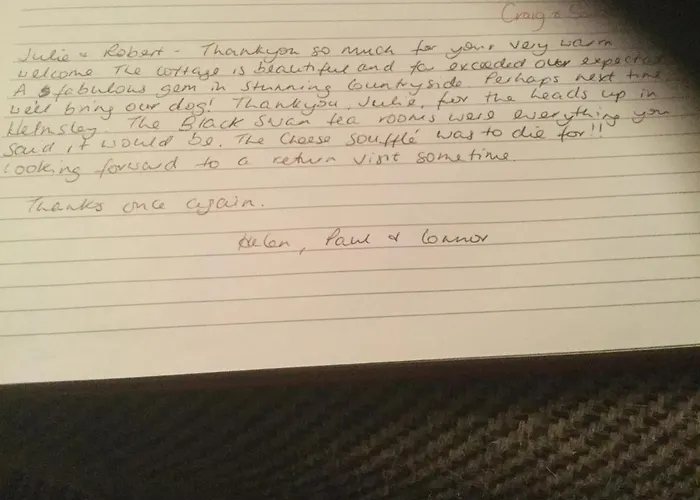 Craig &
Julie & Robert - Thankyou so much for your very warm
welcome The cottage is beautiful and far exceeded our
A fabulous gem in stunning Countryside Perhaps next time
we'll bring our dog! Thankyou, Julie, for the heads up in
Helmsley. The Black Swan tea rooms were everything you
said it would be. The Cheese soufflé was to die for!!
Looking forward to a return visit sometime.
Thanks once again.
Helen, Paul & Connor